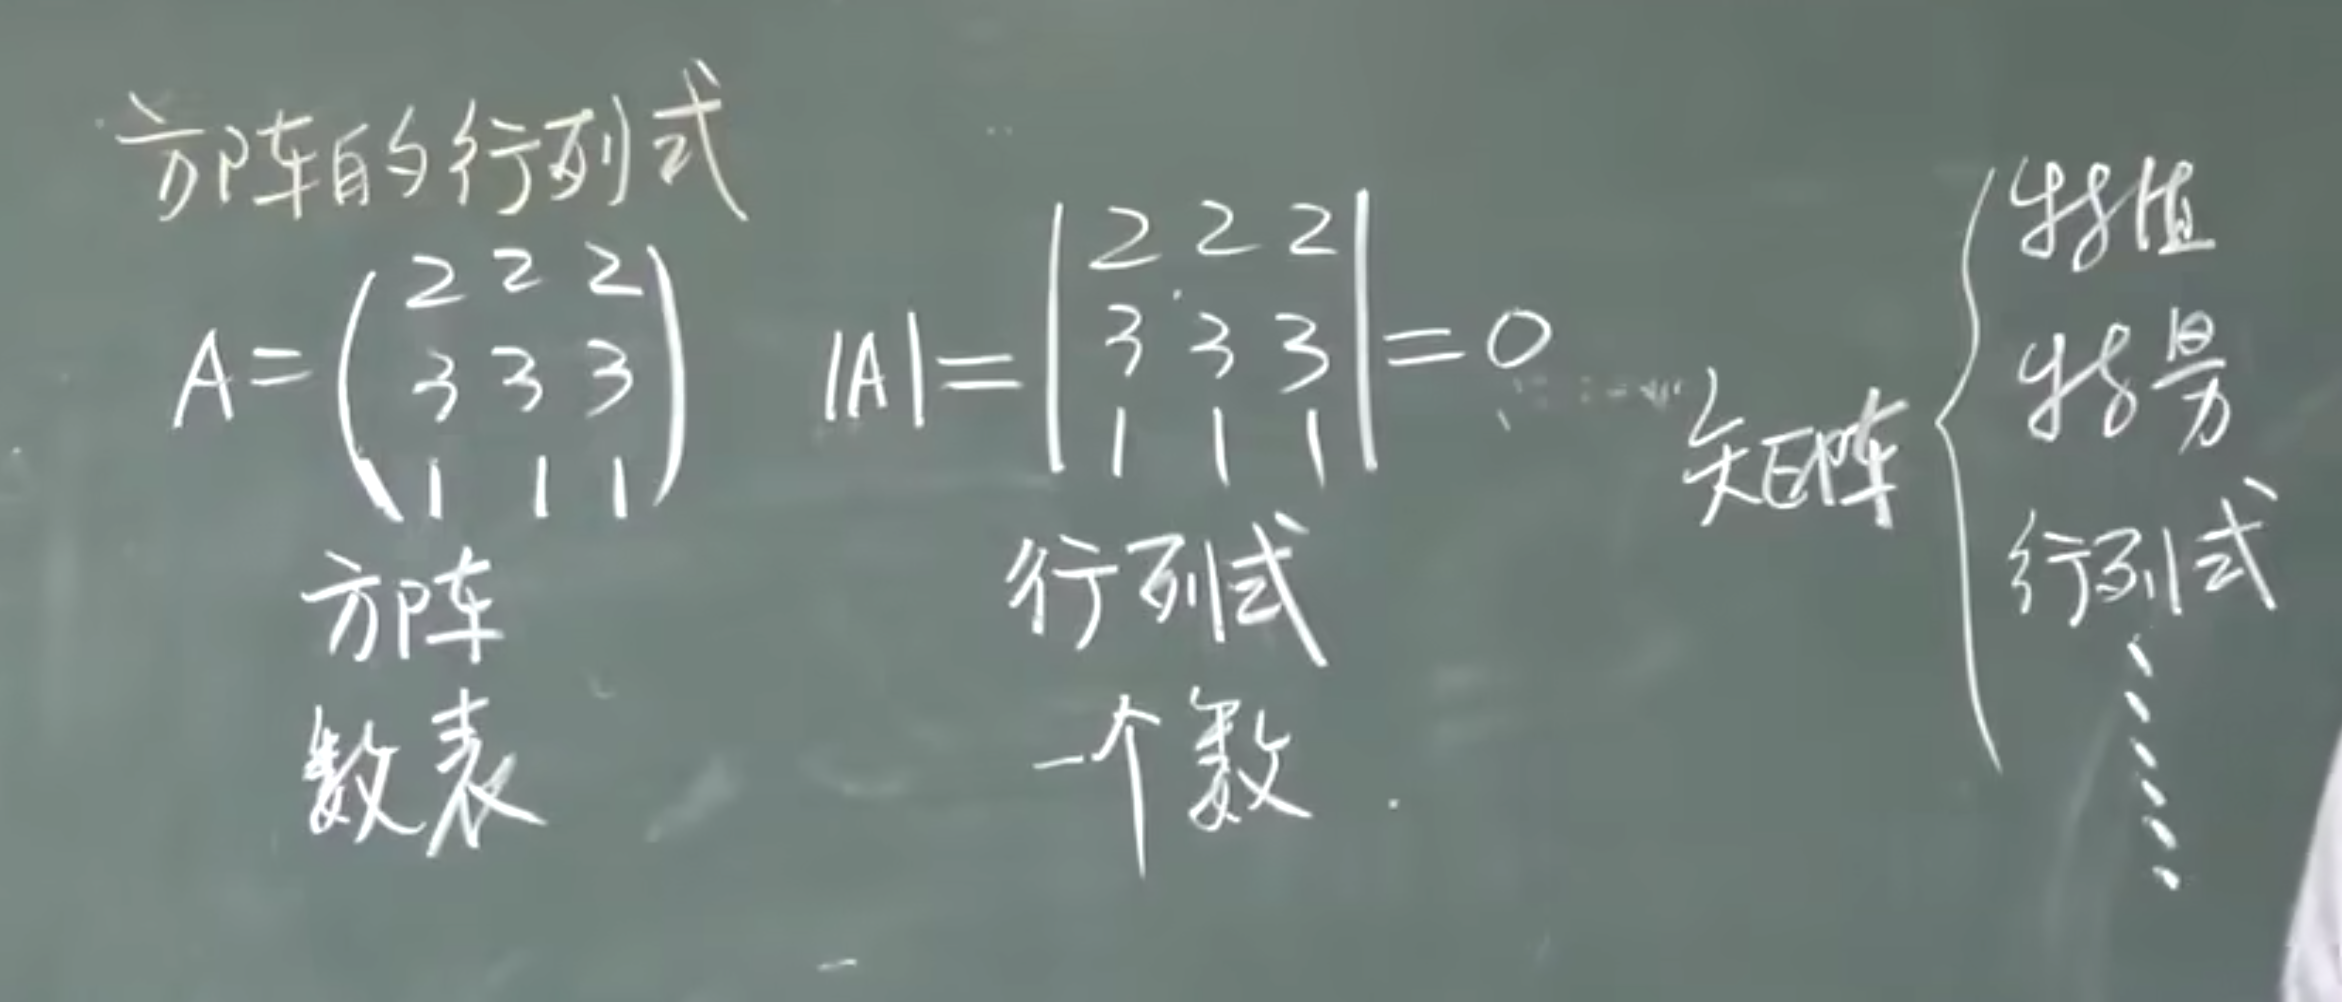 方阵的行列式
A=(2 2 2
3 3 3
1 1 1)
方阵
数表
|A|=|2 2 2
3 3 3
1 1 1|=0
行列式
一个数
矩阵{
特值
特量
行列式